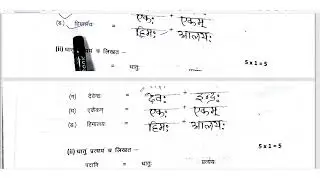 एकः + एकम्
(ङ) हिमालयः = हिमः + आलयः
(ii) धातु प्रत्ययं च लिखत – 5 x 1 = 5
= धातुः
(ग) देवेन्द्रः = देवः + इन्द्रः
(घ) एकैकम् = एकः + एकम्
(ङ) हिमालयः = हिमः + आलयः
(ii) धातु प्रत्ययं च लिखत – 5 x 1 = 5
पदानि = धातुः प्रत्ययः